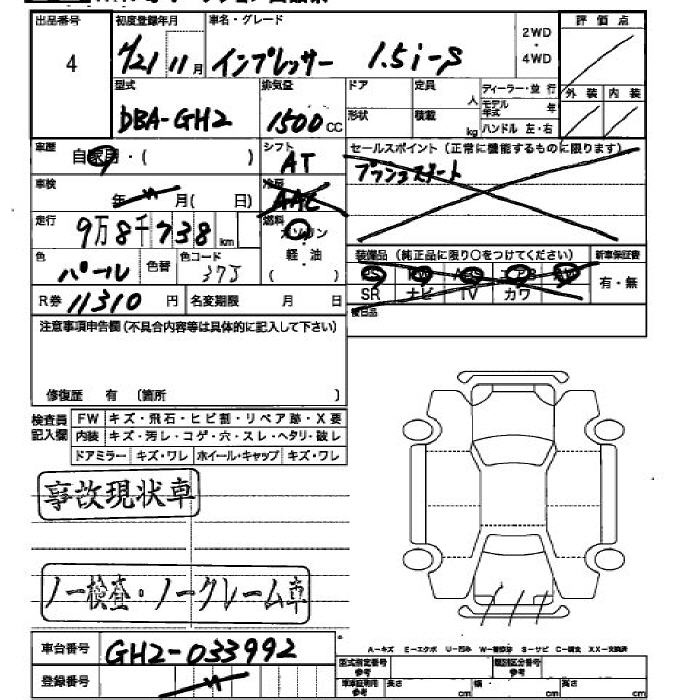 出品番号 初度登録年月 車名・グレード 2WD・4WD 評価点
4 H21 11月 インプレッサー 1.5i-S
型式 排気量 ドア 定員 人 ディーラー・並行 外装 内装
DBA-GH2 1500cc 形状 積載 kg モデル年式 年 ハンドル 左・右
車歴 自家用・( ) シフト AT セールスポイント(正常に機能するものに限ります)
プッシュスタート
車検 年 月( 日) 冷房 AAC
走行 9万8千738km 燃料 ガソリン・軽油 ( )
装備品(純正品に限り○をつけてください) 新車保証書
色 パール 色替 色コード 37J
SR ナビ TV カワ 有・無
R券 11310円 名変期限 月 日 後日品
注意事項申告欄(不具合内容等は具体的に記入して下さい)
修復歴 有 (箇所 )
検査員記入欄 FW キズ・飛石・ヒビ割・リペア跡・X要
内装 キズ・汚レ・コゲ・穴・スレ・ヘタリ・破レ
ドアミラー キズ・ワレ ホイール・キャップ キズ・ワレ
事故現状車
ノー検査・ノークレーム車
車台番号 GH2-033992
A-キズ E-エクボ U-凹み W-補修跡 S-サビ C-腐食 XX-交換済
登録番号
型式指定番号 参考 類別区分番号 参考
車車証明用 参考 長さ cm 幅 cm 高さ cm